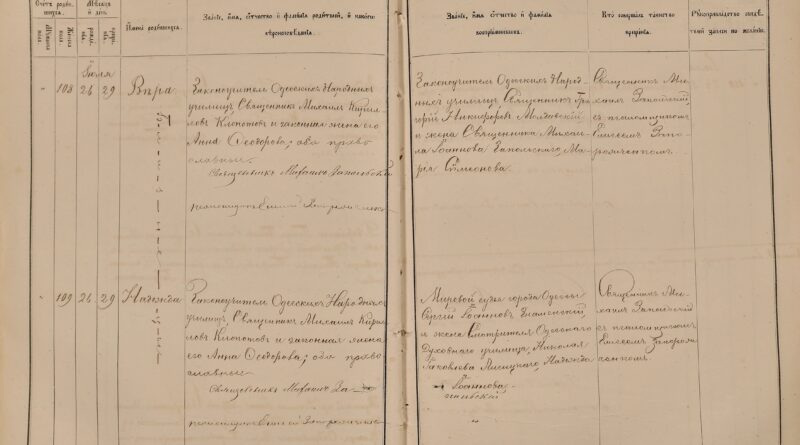 Счетъ родившихся.
Мѣсяцъ и день.
Имена родившихся.
Званіе, имя, отчество и фамилія родителей, и какого вѣроисповѣданія.
Званіе, имя, отчество и фамилія воспріемниковъ.
Кто совершалъ таинство крещенія.
Рукоприкладство свидѣтелей записи по желанію.
Мужеска пола
Женска пола
108 26 29 Вѣра
Законоучитель Одесскихъ Народныхъ
училищъ, Священникъ Михаилъ Кирил
ловъ Клопотовъ и законная жена его
Анна Ѳеодорова; оба право
славные.
Священникъ Михаилъ
Законоучитель Одесскихъ Народ
ныхъ училищъ, Священникъ Гри
горій Никифоровъ Молдавскій
и жена Священника Михаи
ла Іоаннова Запольскаго, Ма
рія Сѵмеонова.
Священникъ Ми
хаилъ Запольскій
съ псаломщикомъ
109 26 29 Надежда
Законоучитель Одесскихъ Народныхъ
училищъ, Священникъ Михаилъ Кирил
ловъ Клопотовъ и законная жена
его Анна Ѳеодорова; оба право
славные.
Священникъ Михаилъ За
Мировой судья города Одессы
Сергій Іоанновъ
и жена Смотрителя Одесскаго
Духовнаго училища, Николая
Іаковлева Лисицкаго, Надежда
Іоаннова
Священникъ Ми
хаилъ Запольскій
съ псаломщикомъ